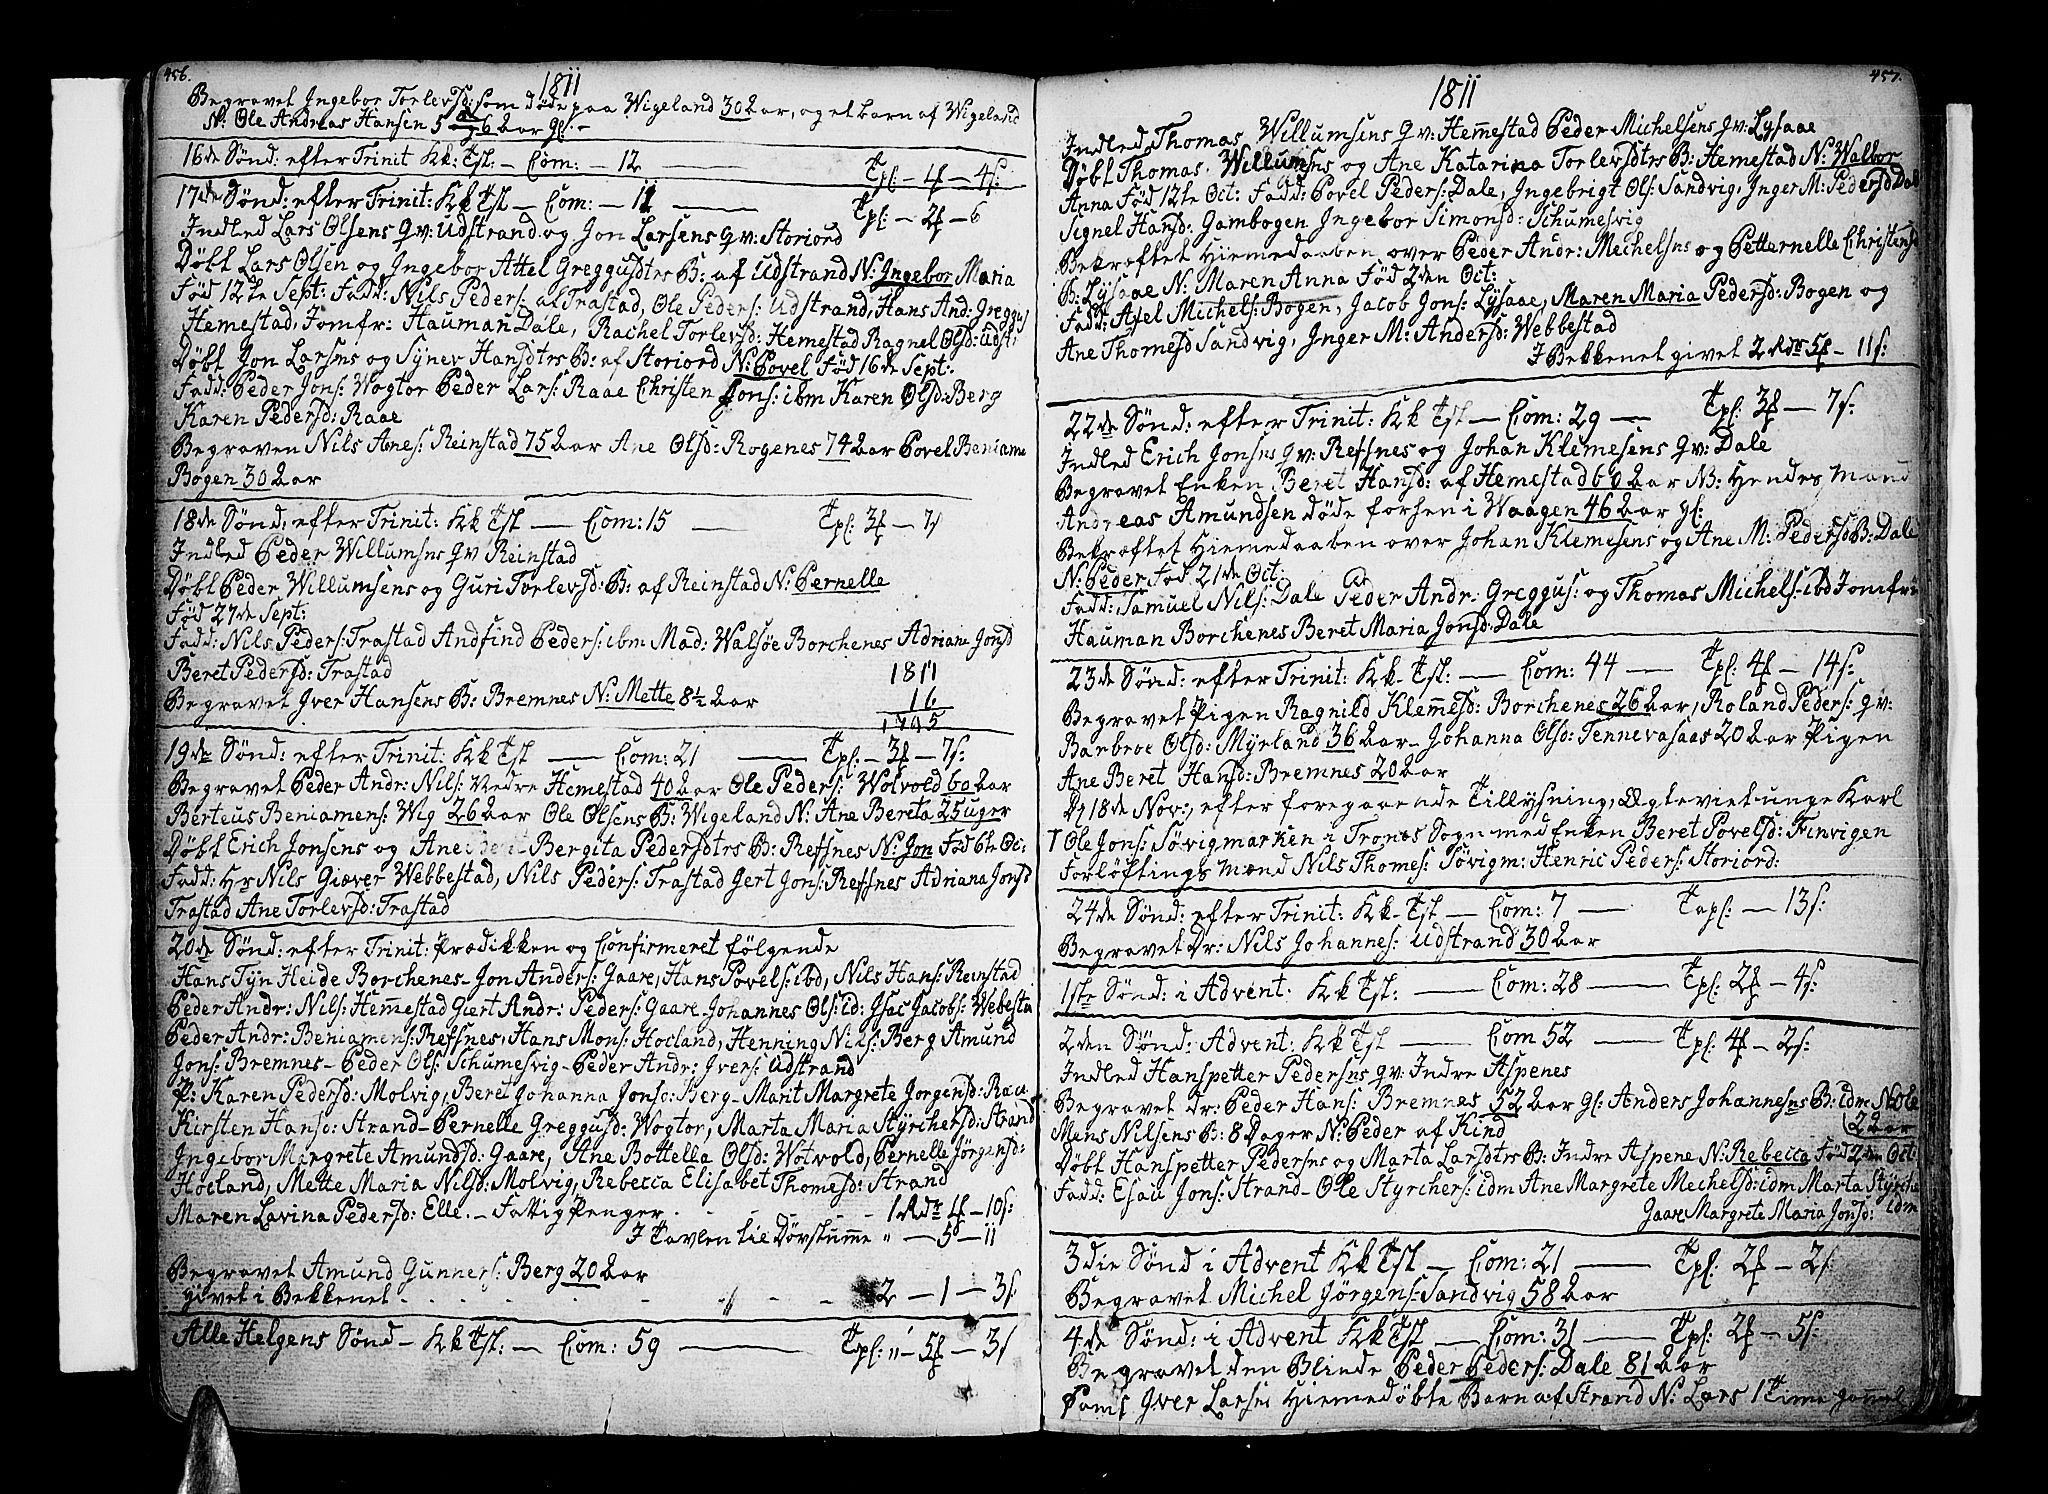 456.
1811
Begravet Ingebor Torlevsd: som døde paa Wigeland 30 Aar, og et barn af Wigeland
N: Ole Andreas Hansen 5 6 Aar gl: -
16de Sønd: efter Trinit Kk: Tst: - Com: - 12 Tpl - 4f - 4s:
17de Sønd: efter Trinit: Kk Tst - Com: - 11 Tpl: - 2f - 6
Indled Lars Olsens qv: Udstrand og Jon Larsens qv: Storiord
Døbt Lars Olsen og Ingebor Attel Greggusdtrs B: af Udstrand N: Ingebor Maria
Fød 12te Sept: Fadd: Nils Peders: af Trastad, Ole Peders: Udstrand, Hans And: Greggus
Hemestad, Jomfr: Hauman Dale, Rachel Torlevsd: Hemestad Ragnel Olsd: Udst:
Døbt Jon Larsens og Synev Hansdtrs B: af Storiord N: Povel Fød 16de Sept:
Fadd: Peder Jons: Wogtor Peder Lars: Raae Christen Jons: ibm Karen Olsd: Berg
Karen Pedersd: Raae
Begraven Nils Anes: Reinstad 75 Aar Ane Olsd: Rogenes 74 Aar Povel Beniams
Bogen 30 Aar
18de Sønd: efter Trinit: Kk Tst - Com: 15 - Tpl: 3f - 7s
Indled Peder Willumsns qv Reinstad
Døbt Peder Willumsens og Guri Torlevsd: B: af Reinstad N: Pernelle
Fød 27de Sept:
Fadd: Nils Peders: Trastad Andfind Peders: ibm Mad: Walsøe Borchenes Adriane Jonsd
Beret Pedersd: Trastad
1811
Begravet Iver Hansens B: Bremnes N: Mette 8½ Aar
16
1795
19de Sønd: efter Trinit: Kk Tst - Com: 21 - Tpl - 3f - 7s:
Begravet Peder Andr: Nils: Nedre Hemestad 40 Aar Ole Peders: Wotvold 60 Aar
Berteus Beniamens: Wig 26 Aar Ole Olsens B: Wigeland N: Ane Bereta 25 uger
Døbt Erich Jonsens og Ane Bergita Pedersdtrs B: Refsnes N: Jon Fød 6te Oc:
Fadd: Hr Nils Giæver Webbestad, Nils Peders: Trastad Gert Jons: Refsnes Adriana Jonsd
Trastad Ane Torlevsd: Trastad
20de Sønd: efter Trinit: Prædikken og Confirmeret følgende
Hans Tyn Heide Borchenes - Jon Anders: Gaare, Hans Povels: ibd, Nils Hans: Reinstad
Peder Andr: Nils: Hemmestad Giert Andr: Peders: Gaare Johannes Ols: id: Isac Jacobs: Webesta
Peder Andr: Beniamens: Refsnes, Hans Mons: Hocland, Henning Nils: Berg Amund
Jons: Bremnes - Peder Ols: Schumesvig - Peder Andr: Ivers: Udstrand
P: Karen Pedersd: Molvig, Beret Johanna Jonsd: Berg - Marit Margrete Jørgensd: Raa
Kirsten Hansd: Strand - Pernelle Greggusd: Wogtor, Marta Maria Styrchersd: Strand
Ingebor Margrete Amundsd: Gaare, Ane Bottella Olsd: Wotvold, Pernelle Jørgensd:
Hocland, Mette Maria Nilsd: Molvig, Rebecca Elisabet Thomesd: Strand
Maren Lavina Pedersd: Elle. - Fattig Penger - 1 Rdr 4f - 10s:
I Tavlen til Døvstumme " - 5f - 11
Begravet Amund Gunners: Berg 20 Aar
givet i Bekkenet - 2 - 1 - 3s:
Alle Helgens Sønd - Kk Tst: - Com: 59 - Tpl: " - 5f - 3s
457.
1811
Indled Thomas Willumsens qv: Hemmestad Peder Michelsens qv: Lysaae
Døbt Thomas Willumsns og Ane Katarina Torlevsdtrs B: Hemestad N: Walbor
Anna Fød 12te Oct: Fadd: Povel Peders: Dale, Ingebrigt Ols: Sandvig, Inger M: Pedersd Dal
Signel Hansd: Gambogen Ingebor Simonsd: Schumesvig
Bekræftet Hiemedaaben over Peder Andr: Mechelsns og Petternelle Christensd
B: Lysaae N: Maren Anna Fød 2den Oct:
Fadd: Axel Michels: Bogen, Jacob Jons: Lysaae, Maren Maria Pedersd: Bogen og
Ane Thomesd Sandvig, Inger M: Andersd: Webbestad
I Bekkenet givet 2 Rdr 5f - 11s:
22de Sønd: efter Trinit: Kk Tst - Com: 29 - Tpl: 3f - 7s:
Indled Erich Jonsns qv: Refsnes og Johan Klemesens qv: Dale
Begravet Enken Beret Hansd: af Hemestad 60 Aar NB: Hendes Mand
Andreas Amundsen døde forhen i Waagen 46 Aar gl:
Bekræftet Hiemedaaben over Johan Klemesens og Ane M: Pedersd B: Dale
N: Peder Fød 21de Oct:
Fadd: Samuel Nils: Dale Peder Andr: Greggus: og Thomas Michels: ibd Jomfru
Hauman Borchenes Beret Maria Jonsd: Dale
23de Sønd: efter Trinit: Kk Tst: - Com: 44 - Tpl: 4f - 14s:
Begravet Pigen Ragnild Klemesd: Borchenes 26 Aar, Roland Peders: qv:
Barbroe Olsd: Myrland 36 Aar - Johanna Olsd: Tennevasaas 20 Aar Pigen
Ane Beret Hansd: Bremnes 20 Aar
D: 18de Nov:, efter foregaaende Tillysning, Ægteviet unge Karl
T Ole Jons: Søvigmarken i Tronæs Sogn med Enken Beret Povelsd: Finvigen
Forløftings Mænd Nils Thomes: Søvigm: Henric Peders: Storiord:
24de Sønd: efter Trinit: Kk - Tst - Com: 7 - Tapl: - 13s:
Begravet Dr: Nils Johannes: Udstrand 30 Aar
1ste Sønd: i Advent: Kk Tst: - Com: 28 - Tpl: 2f - 4s:
2den Sønd: Advent: Kk Tst - Com 52 - Tpl: 4f - 2s:
Indled Hanspetter Pedersns qv: Indre Aspenes
Begravet Dr: Peder Hans: Bremnes 52 Aar gl: Anders Johannesns B: idm N: Ole
2 Aar
Mons Nilsens B: 8 Dager N: Peder af Kind
Døbt Hanspetter Pedersns og Marta Larsdtrs B: Indre Aspene N: Rebecca Fød 2den Oct
Fadd: Esau Jons: Strand - Ole Styrchers: idm Ane Margrete Mechelsd: idm Marta Styrche
Gaare Margrete Maria Jonsd: idm
3die Sønd i Advent Kk Tst - Com: 21 - Tpl: 2f - 2s:
Begravet Michel Jørgens: Sandvig 58 Aar
4de Sønd: i Advent Kk Tst - Com: 31 - Tpl: 2f - 5s:
Begravet den Blinde Peder Peders: Dale 81 Aar
Sams Iver Larsns Hiemedøbte Barn af Strand N: Lars 1 Time gammel